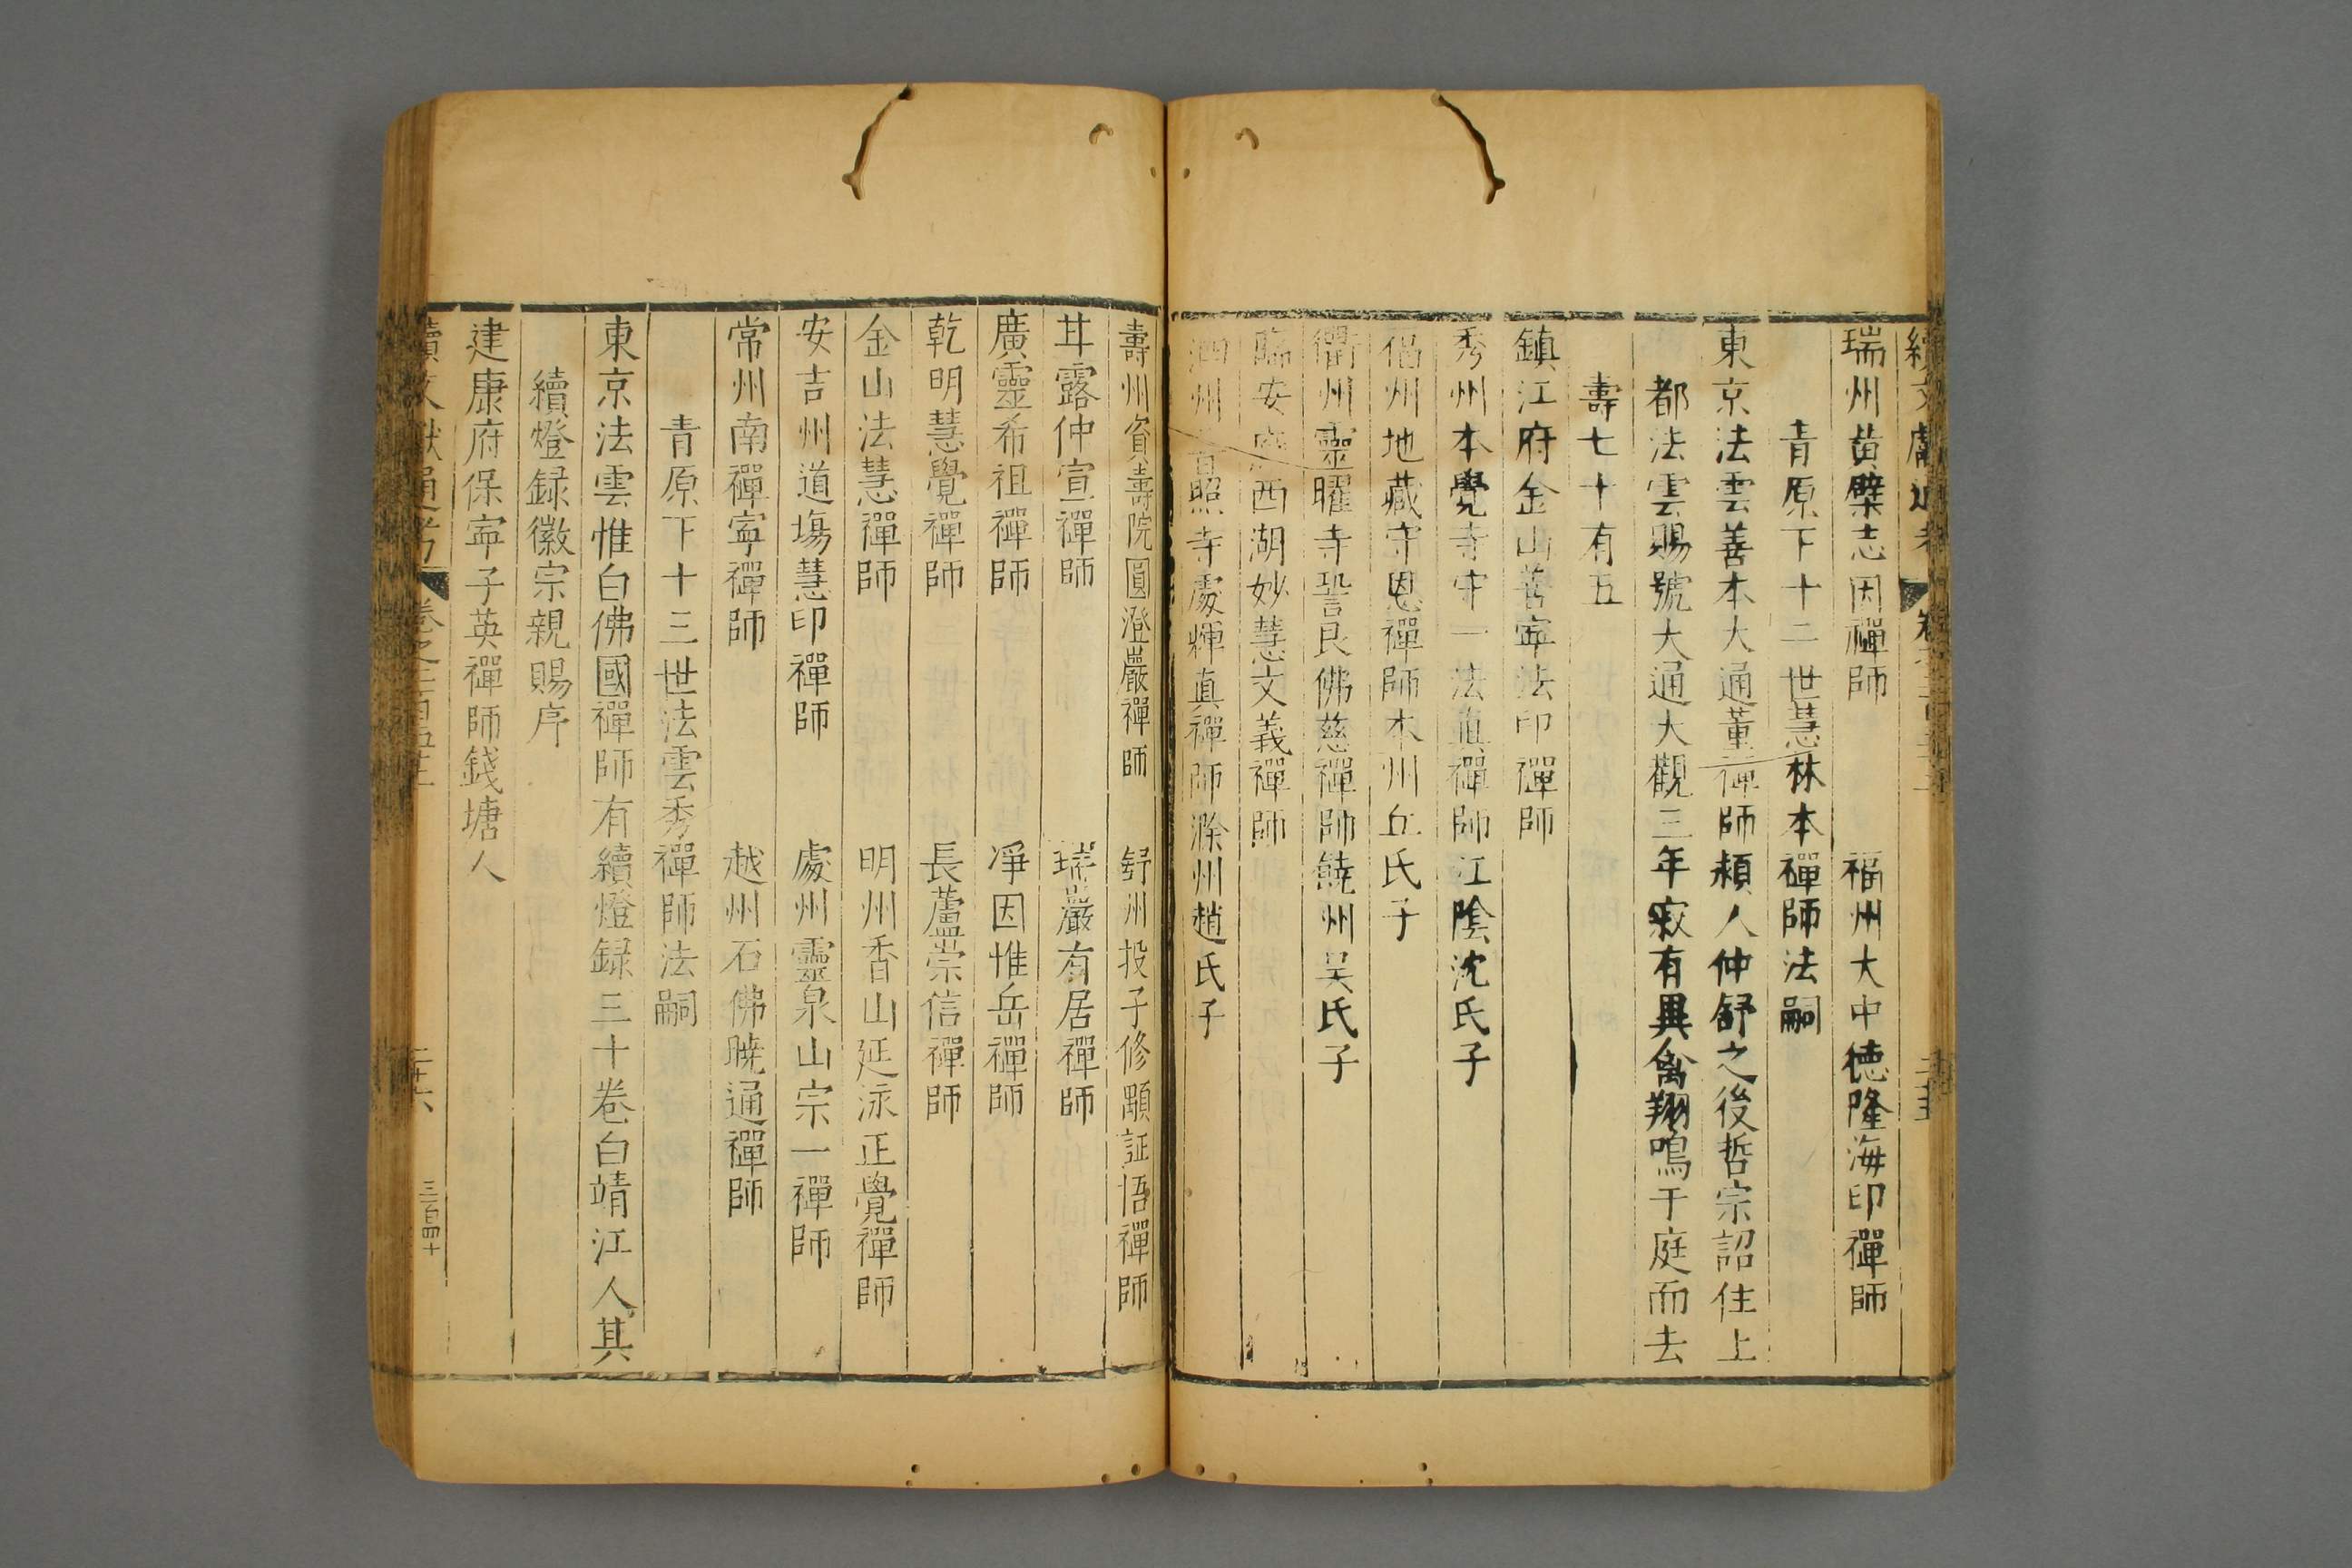 續文獻通考
瑞州黄檗志因禪師 福州大中德隆海印禪師
青原下十二世慧林本禪師法嗣
東京法雲善本大通董禪師頴人仲舒之後哲宗詔住上
都法雲賜號大通大觀三年寂有異禽翔鳴于庭而去
壽七十有五
鎮江府金山善寧法印禪師
秀州本覺寺守一法真禪師江陰沈氏子
福州地藏守恩禪師本州丘氏子
衢州靈曜寺䛒良佛慈禪師饒州吴氏子
臨安府西湖妙慧文義禪師
泗州普照寺處輝真禪師滁州趙氏子
壽州資壽院圓澄巖禪師 舒州投子修顒証悟禪師
甘露仲宣禪師 瑞巖有居禪師
廣靈希祖禪師 淨因惟岳禪師
乾明慧覺禪師 長蘆崇信禪師
金山法慧禪師 明州香山延泳正覺禪師
安吉州道塲慧印禪師 處州靈泉山宗一禪師
常州南禪寧禪師 越州石佛曉通禪師
青原下十三世法雲秀禪師法嗣
東京法雲惟白佛國禪師有續燈録三十卷白靖江人其
續燈録徽宗親賜序
建康府保寧子英禪師錢塘人
續文獻通考 卷之二百五十 二十六 三百四十